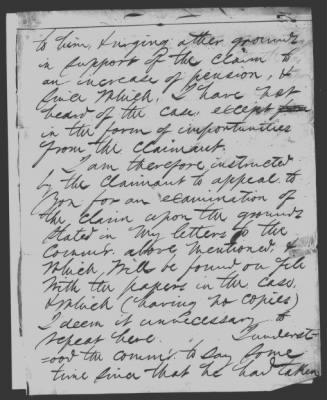 to him, & urging other grounds
in support of the claim to
an increase of pension, &
since which, I have not
heard of the case, except
in the form of importunities
from the claimant.
I am therefore instructed
by the Claimant to appeal to
You for an examination of
the claim upon the grounds
stated in my letters to the
Commr. above mentioned, &
which, will be found on file
with the papers in the case,
& which (having no copies)
I deem it unnecessary to
repeat here. I underst-
=ood the Commr. to say some
time since that he had taken